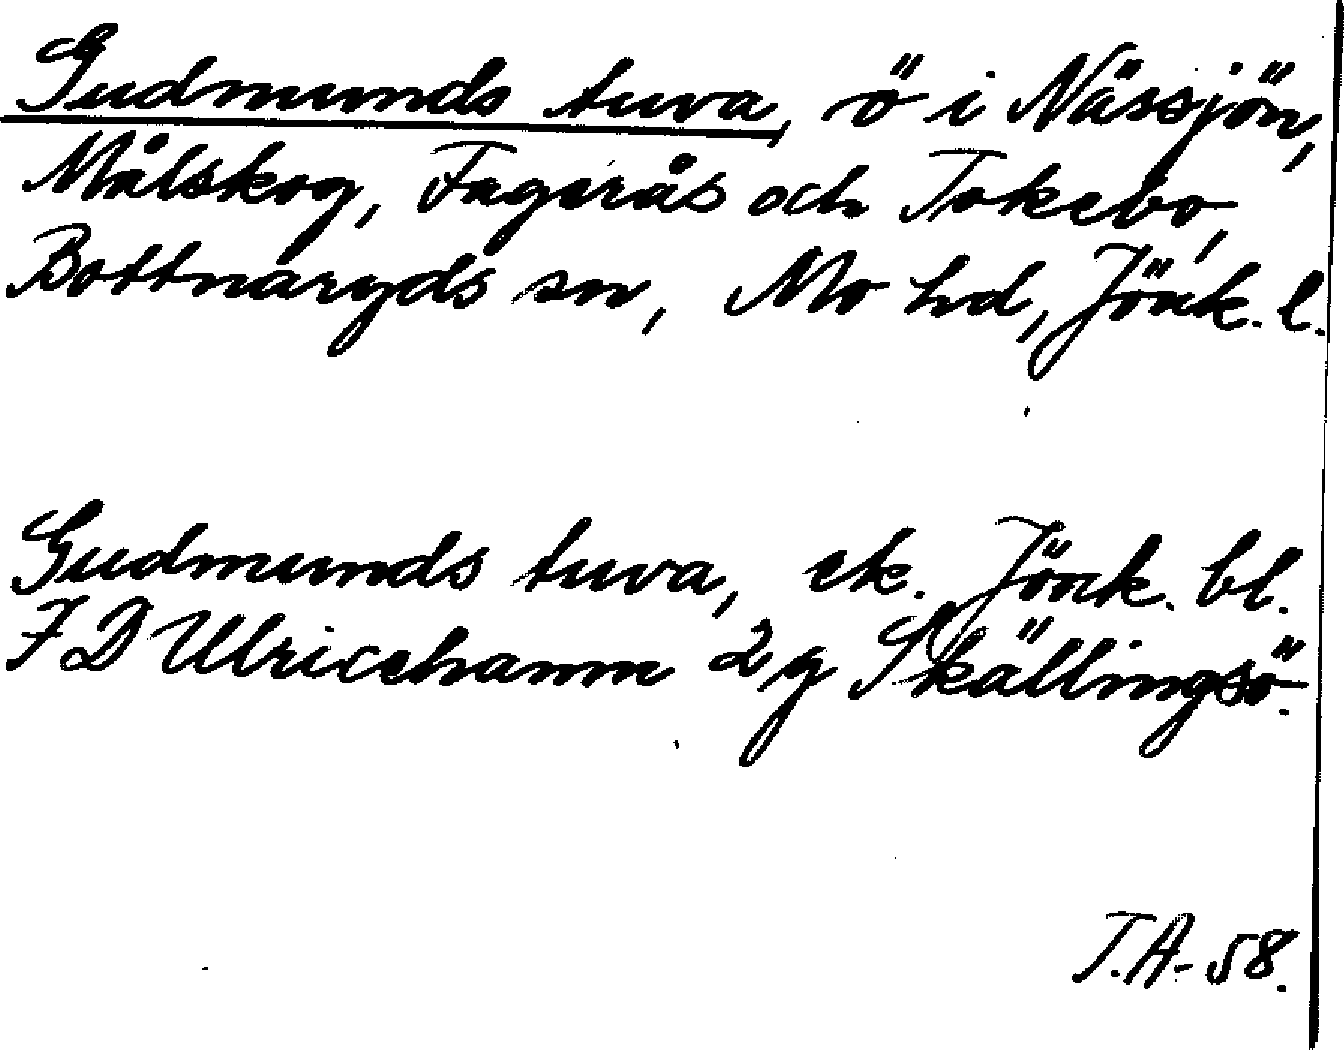 Gudmunds tuva, ö i Nässjön,
Målskog, Fagerås och Tokebo,
Bottnaryds sn, Mo hd, Jönk. l.
Gudmunds tuva, ek. Jönk. bl.
7 D Ulricehamn 2 g Skällingsö.
T.A-58.